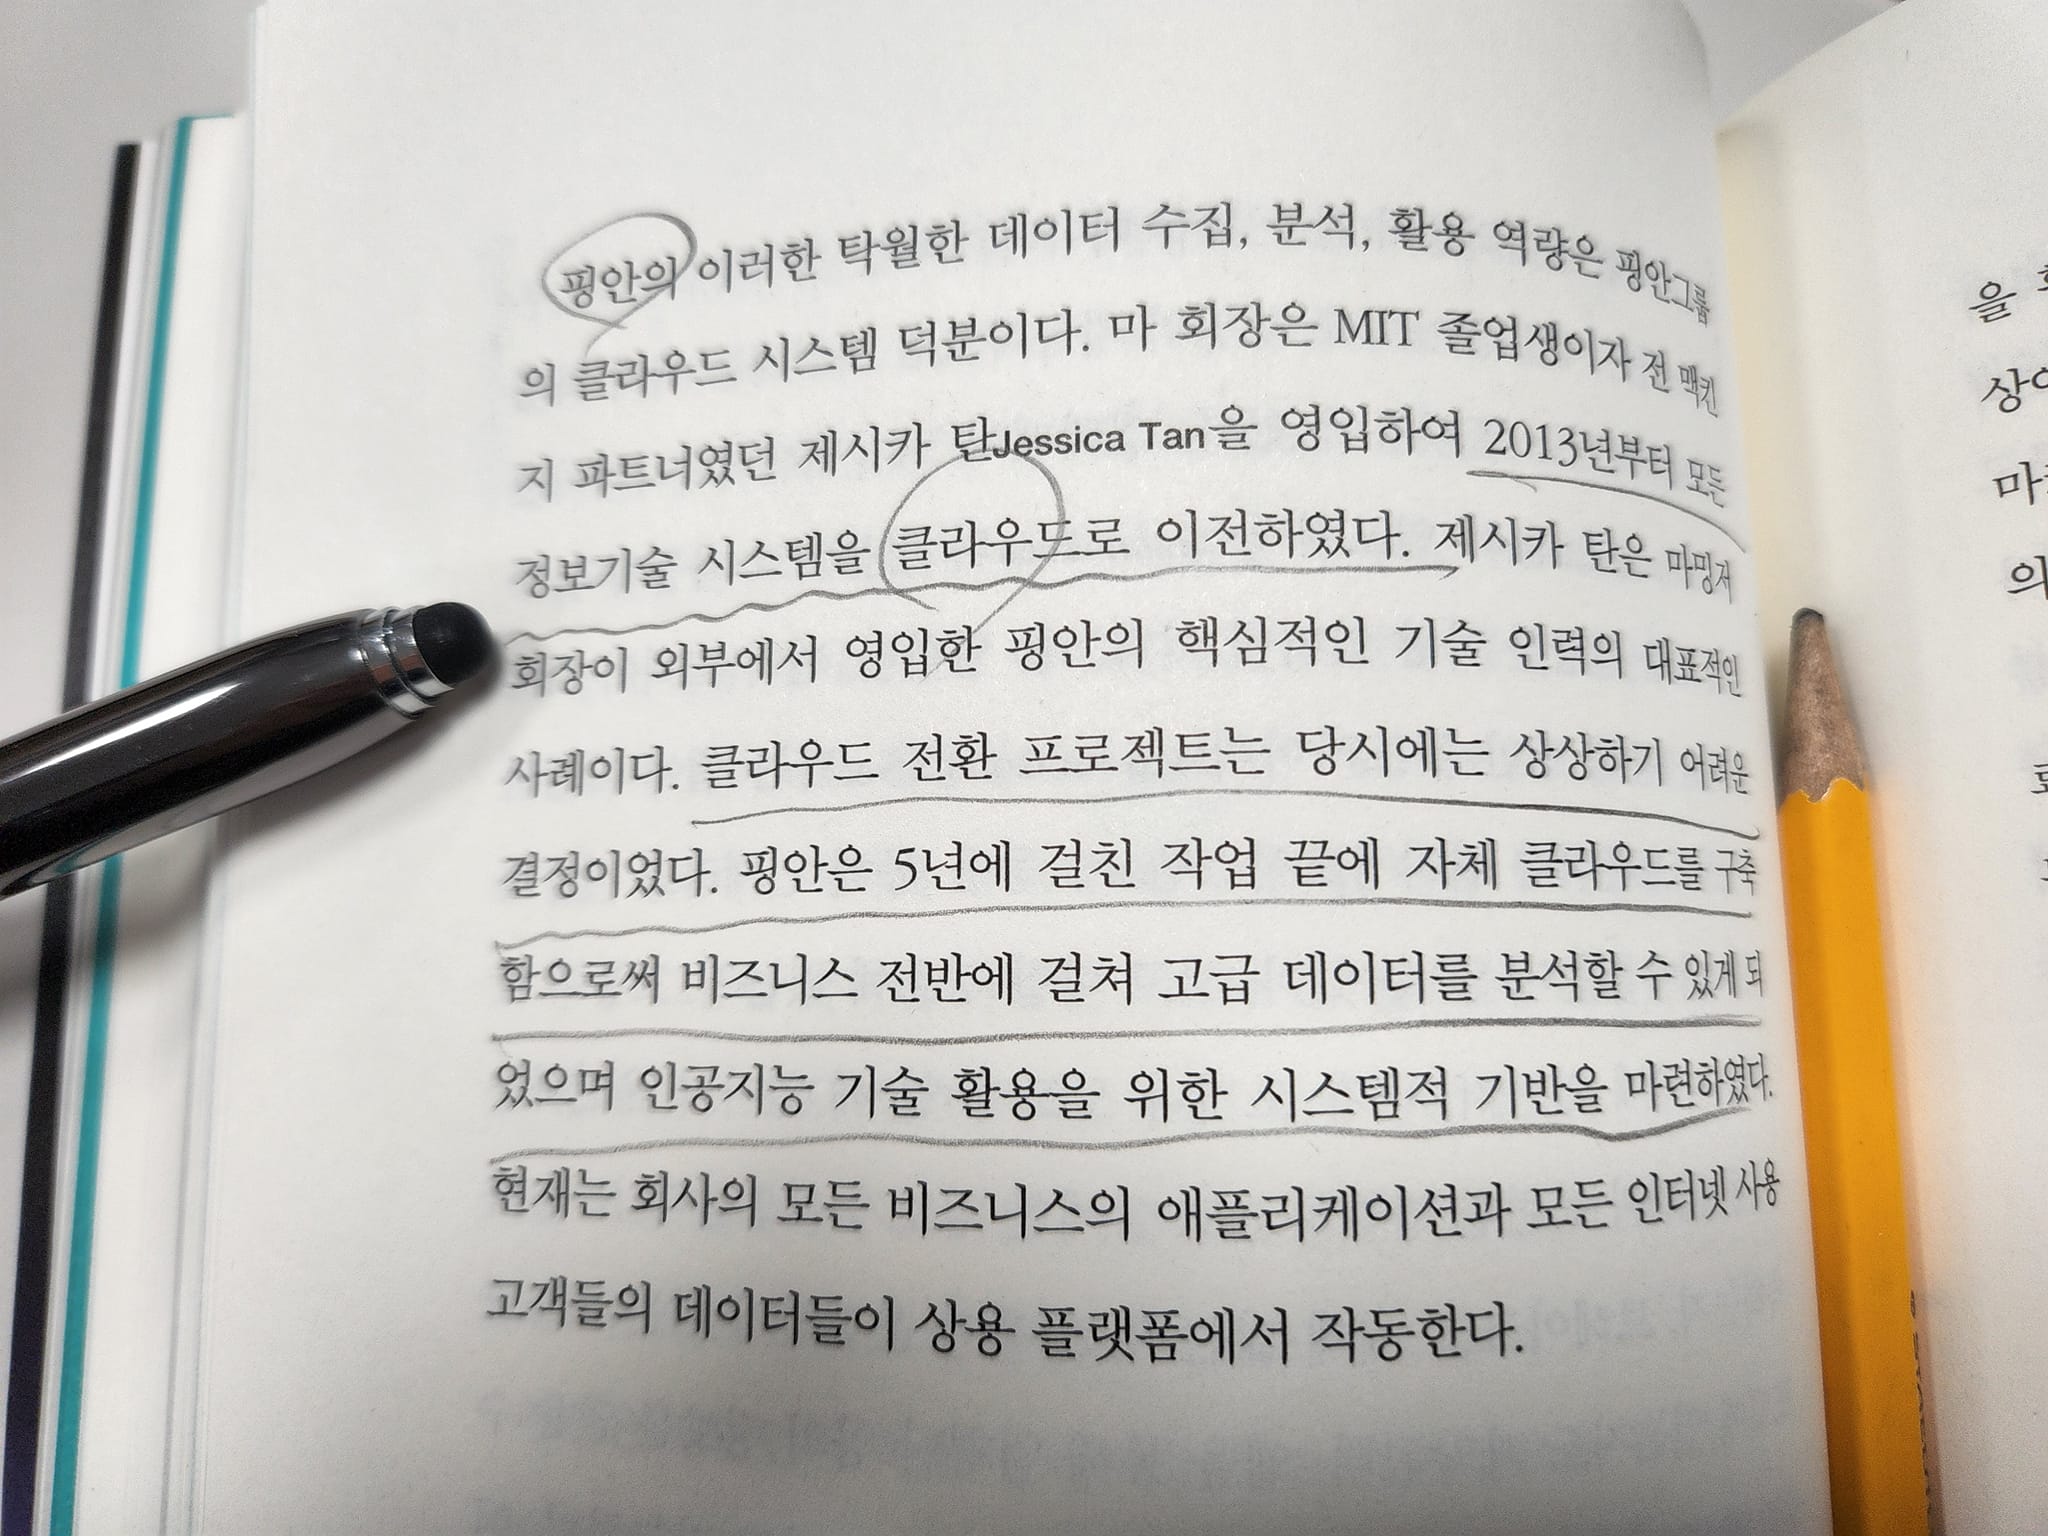 핑안의 이러한 탁월한 데이터 수집, 분석, 활용 역량은 핑안그룹
의 클라우드 시스템 덕분이다. 마 회장은 MIT 졸업생이자 전 맥킨
지 파트너였던 제시카 탄Jessica Tan을 영입하여 2013년부터 모든
정보기술 시스템을 클라우드로 이전하였다. 제시카 탄은 마밍저
회장이 외부에서 영입한 핑안의 핵심적인 기술 인력의 대표적인
사례이다. 클라우드 전환 프로젝트는 당시에는 상상하기 어려운
결정이었다. 핑안은 5년에 걸친 작업 끝에 자체 클라우드를 구축
함으로써 비즈니스 전반에 걸쳐 고급 데이터를 분석할 수 있게 되
었으며 인공지능 기술 활용을 위한 시스템적 기반을 마련하였다.
현재는 회사의 모든 비즈니스의 애플리케이션과 모든 인터넷 사용
고객들의 데이터들이 상용 플랫폼에서 작동한다.
을
의